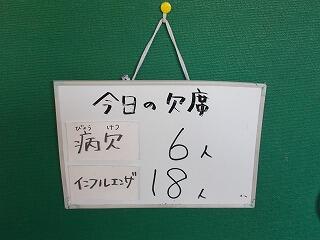 今日の欠席
びょう けつ
病欠 6人
インフルエンザ 18人